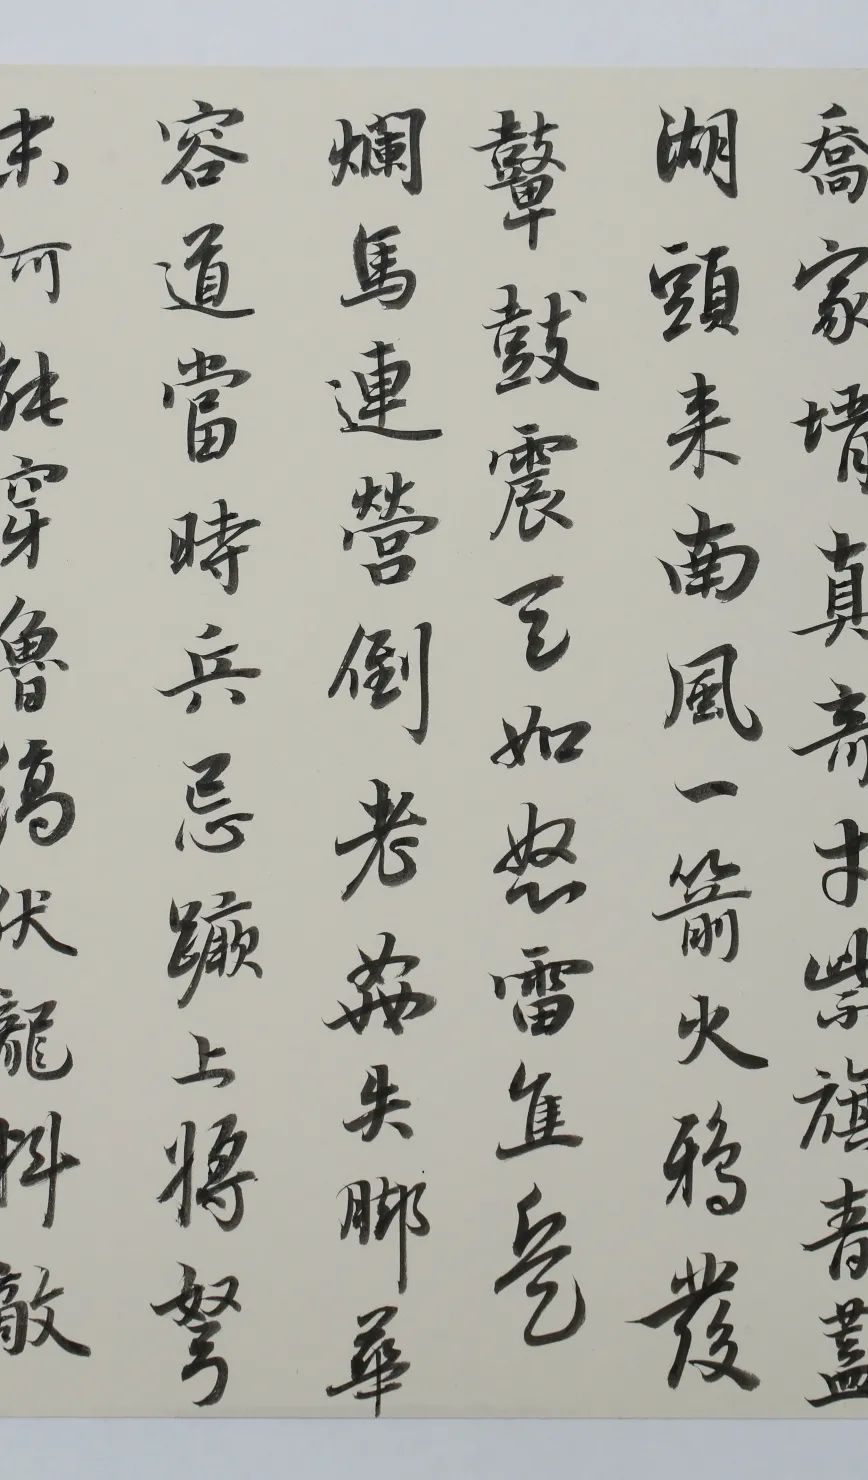 喬家壻真奇才紫旗青蓋
湖頭来南風一箭火鴉發
鼙鼓震天如怒雷焦兵
爛馬連營倒老姦失脚華
容道當時兵忌蹶上將弩
末何能穿魯縞伏龍料敵